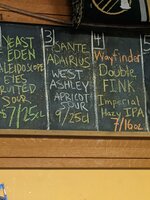 YEAST
EDEN
KALEIDOSCOPE
EYES
FRUITED
SOUR
8/25cl
3
SANTE
ADAIRIUS
WEST
ASHLEY
APRICOT
SOUR
9/25cl
4
Wayfinder
Double
FINK
Imperial
Hazy IPA
7/16oz
5